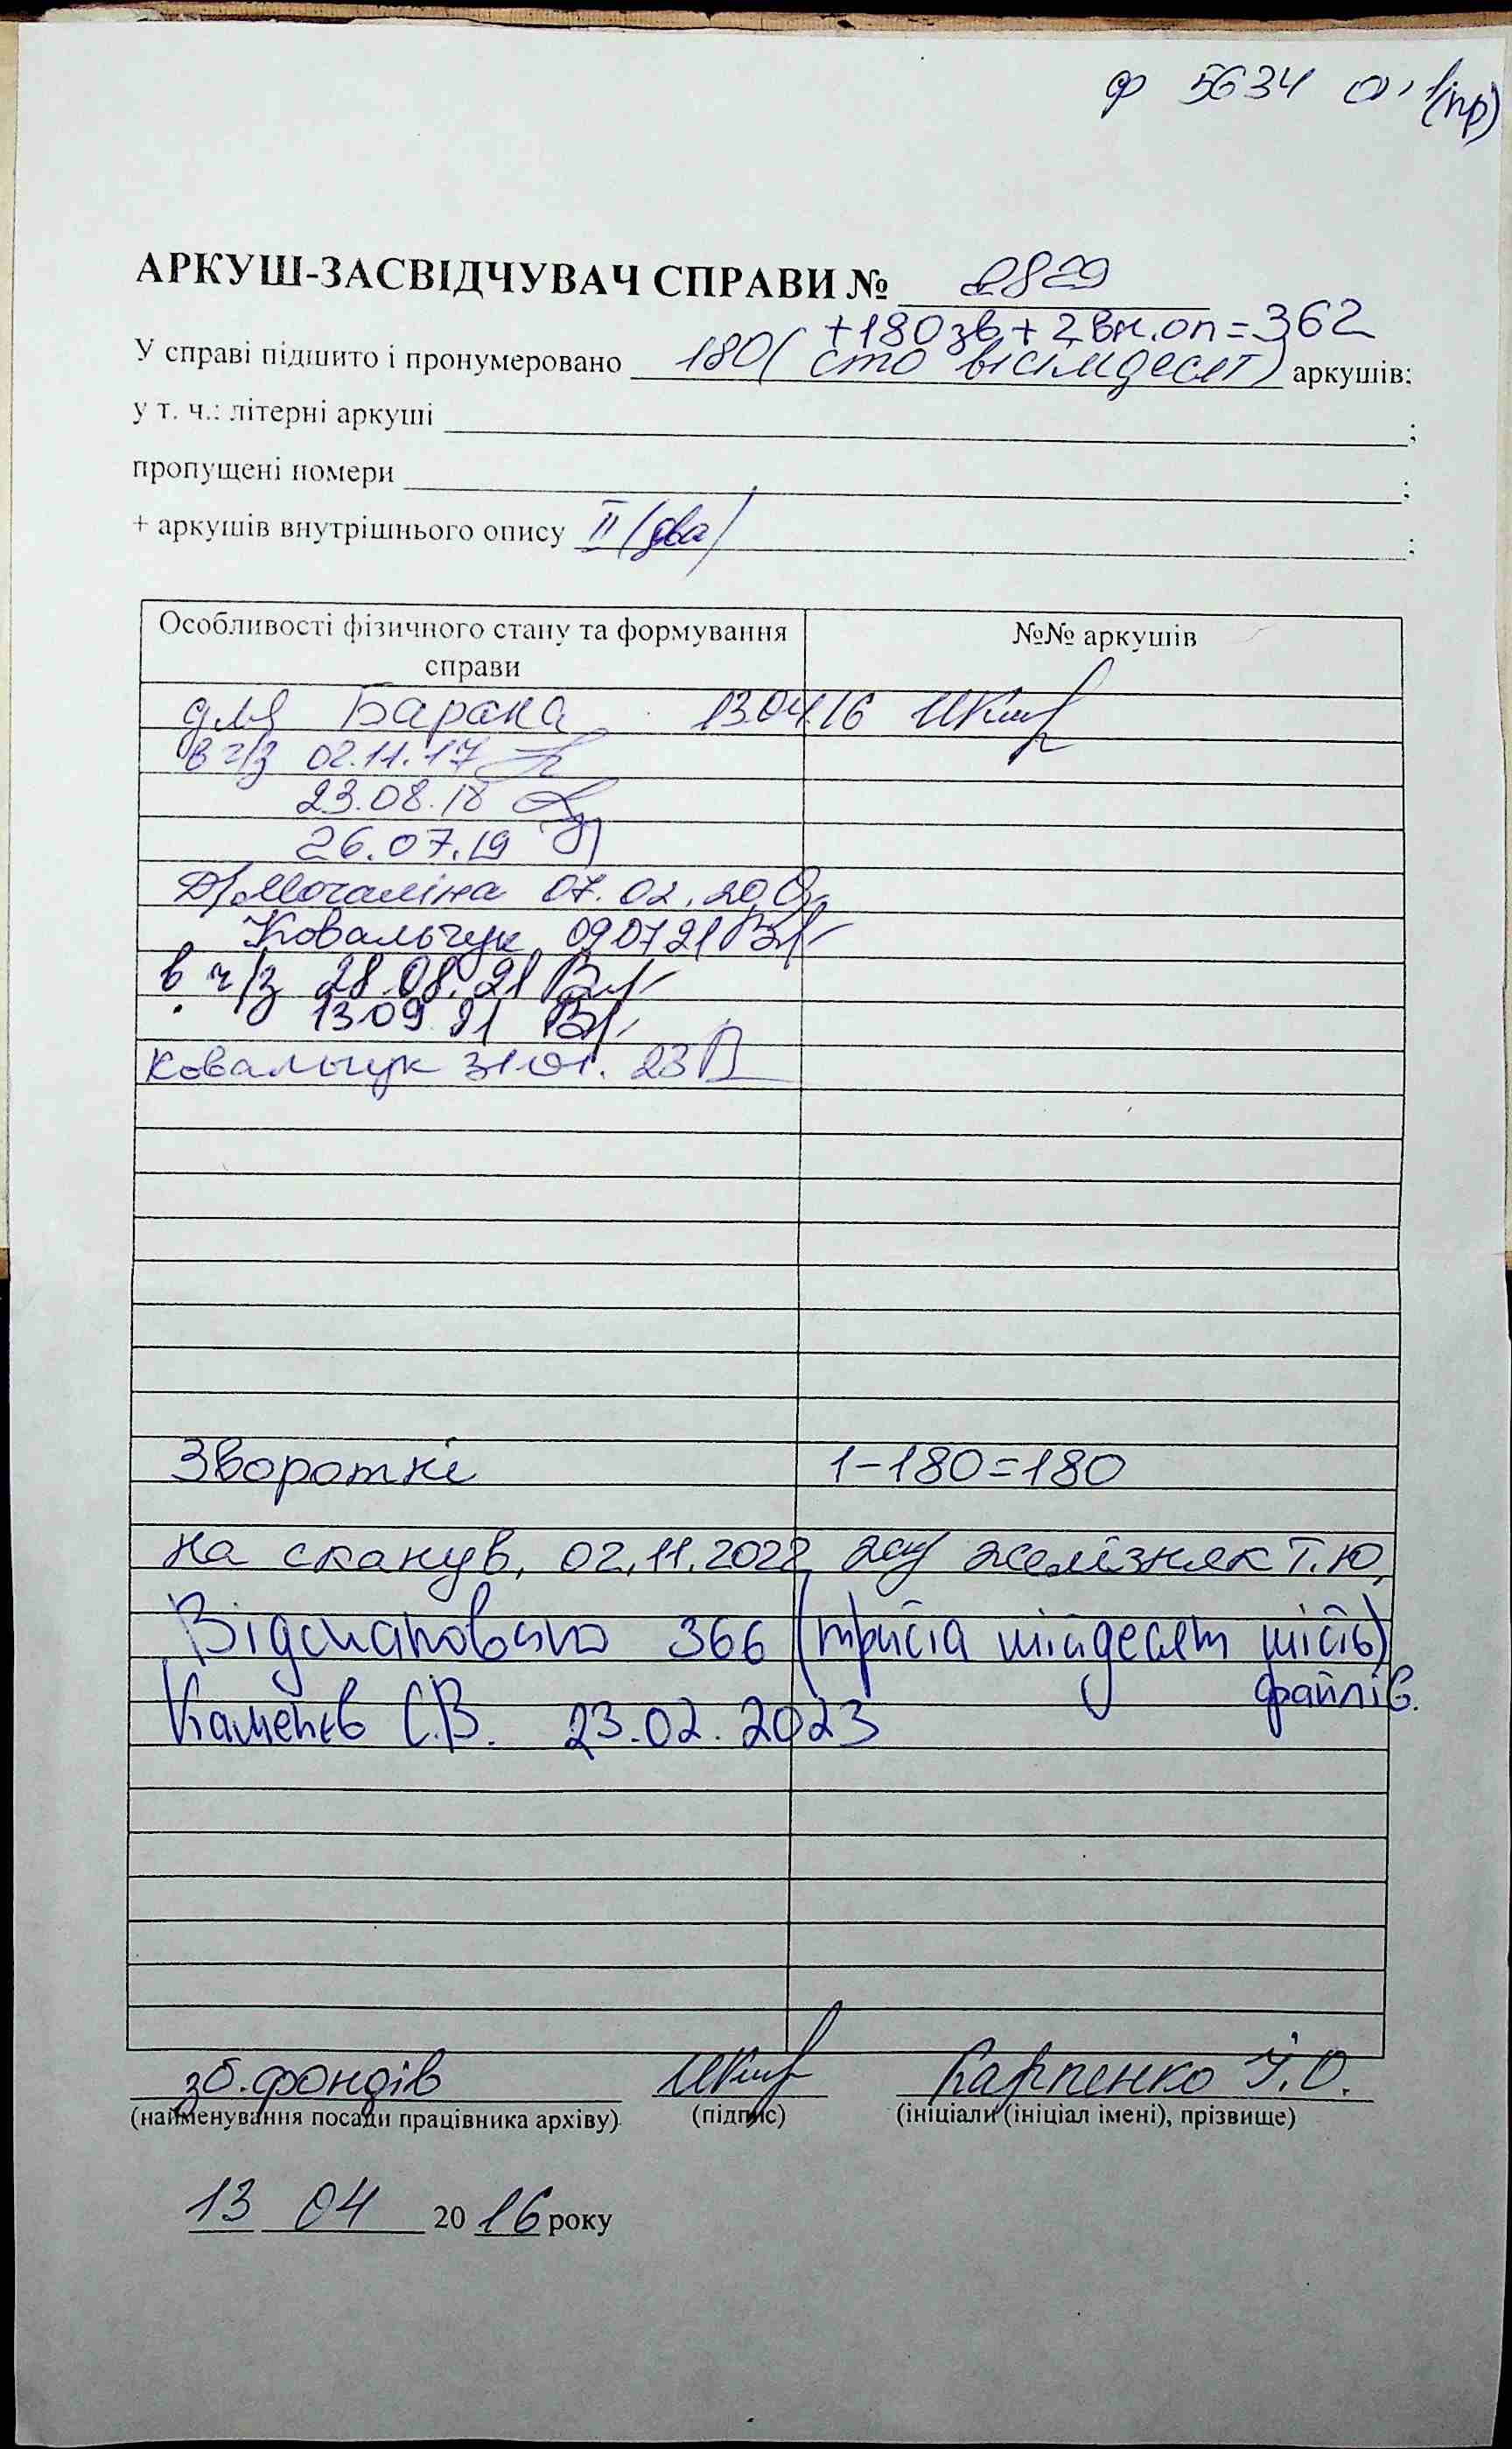 ф 5634 о, 1(пр)
АРКУШ-ЗАСВІДЧУВАЧ СПРАВИ № 2829
+180 зв + 2 вн.оп = 362
У справі підшито і пронумеровано 180 (сто вісімдесят) аркушів:
у т. ч.: літерні аркуші ;
пропущені номери ;
+ аркушів внутрішнього опису II (два) ;
Особливості фізичного стану та формування справи
№№ аркушів
для Барана 13.04.16
в ч/з 02.11.17
23.08.18
26.07.19
Мочаліна 07.02.20
Ковальчук 09 07 21
в ч/з 28.08.21
13 09 21
Ковальчук 31.01.23
Зворотні 1-180=180
на сканув, 02.11.2022 Желізняк Т.Ю,
Відскановано 366 (триста шістдесят шість)
файлів.
Каменєв С.В. 23.02.2023
зб. фондів Карпенко І.О.
(найменування посади працівника архіву) (підпис) (ініціали (ініціал імені), прізвище)
13 04 2016 року